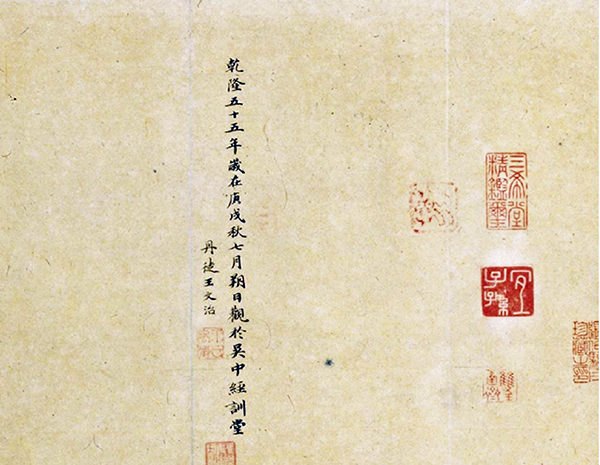 三希堂
精鑑璽
宜
子孫
乾隆五十五年歲在庚戌秋七月朔日觀於吳中經訓堂
丹徒王文治